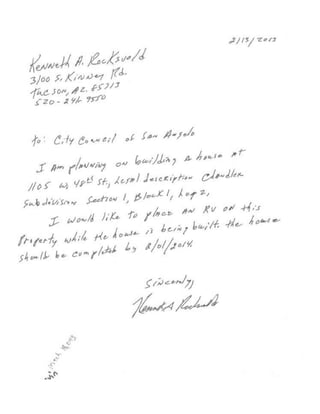 2/13/2013
Kenneth A. Rocksvold
3100 S. Kinney Rd.
Tucson, AZ. 85713
520-241-9550
To: City Council of San Angelo
I Am planning on building a house at
1105 W. 48th St., Legal description Chandler
Subdivision Section 1, Block 1,
I would like to place AN RV on this
Property while the house is being built. the house
should be completed by 8/01/2014.
Sincerely,
Kenneth A Rocksvold